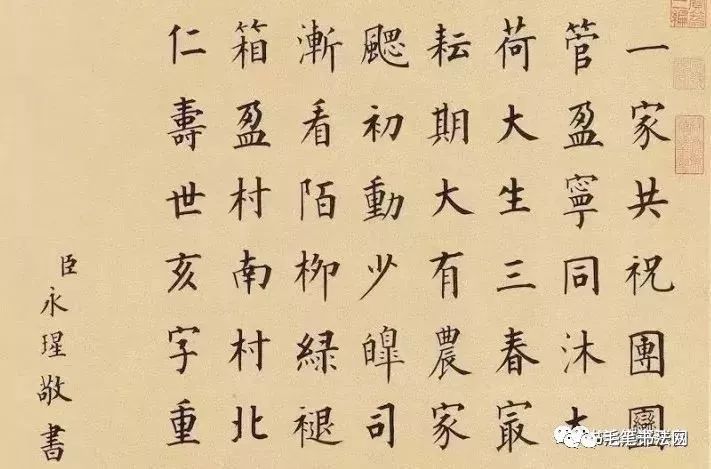 一家共祝團圞
管盈寧同沐大
荷大生三春㝡
耘期大有農家
颸初動少皞司
漸看陌栁緑褪
箱盈村南村北
仁壽世亥字重
臣永瑆敬書
毛笔书法网